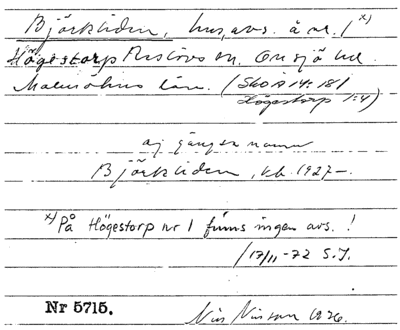 Björkliden, hus, avs. å nr 1 x)
Högestorp Röstånga sn. Onsjö hd.
Malmöhus län. (SkO A 14: 181
Högestorp 1:4)
ej gängse namn
Björkliden, kb. 1927–.
x) På Högestorp nr 1 finns ingen avs. !
17/11 -72 S.J.
Nr 5715.
Nils Nilsson 1926.